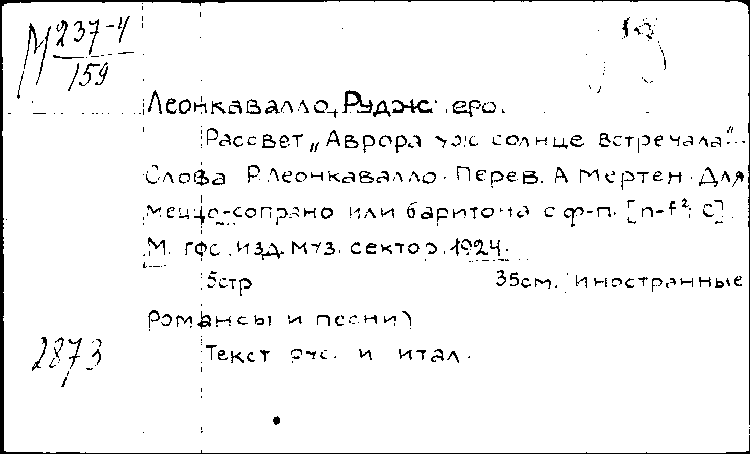 М 237-4
159
Леонкавалло, Руджеро.
Рассвет „Аврора уж солнце встречала"...
Слова Р. Леонкавалло. Перев. А Мертен. Для
меццо-сопрано или баритона с ф-п. [n-f²; C]
М. гос. изд. муз. сектор. 1924.
5стр 35см. (иностранные
романсы и песни)
2873 Текст рус. и итал.